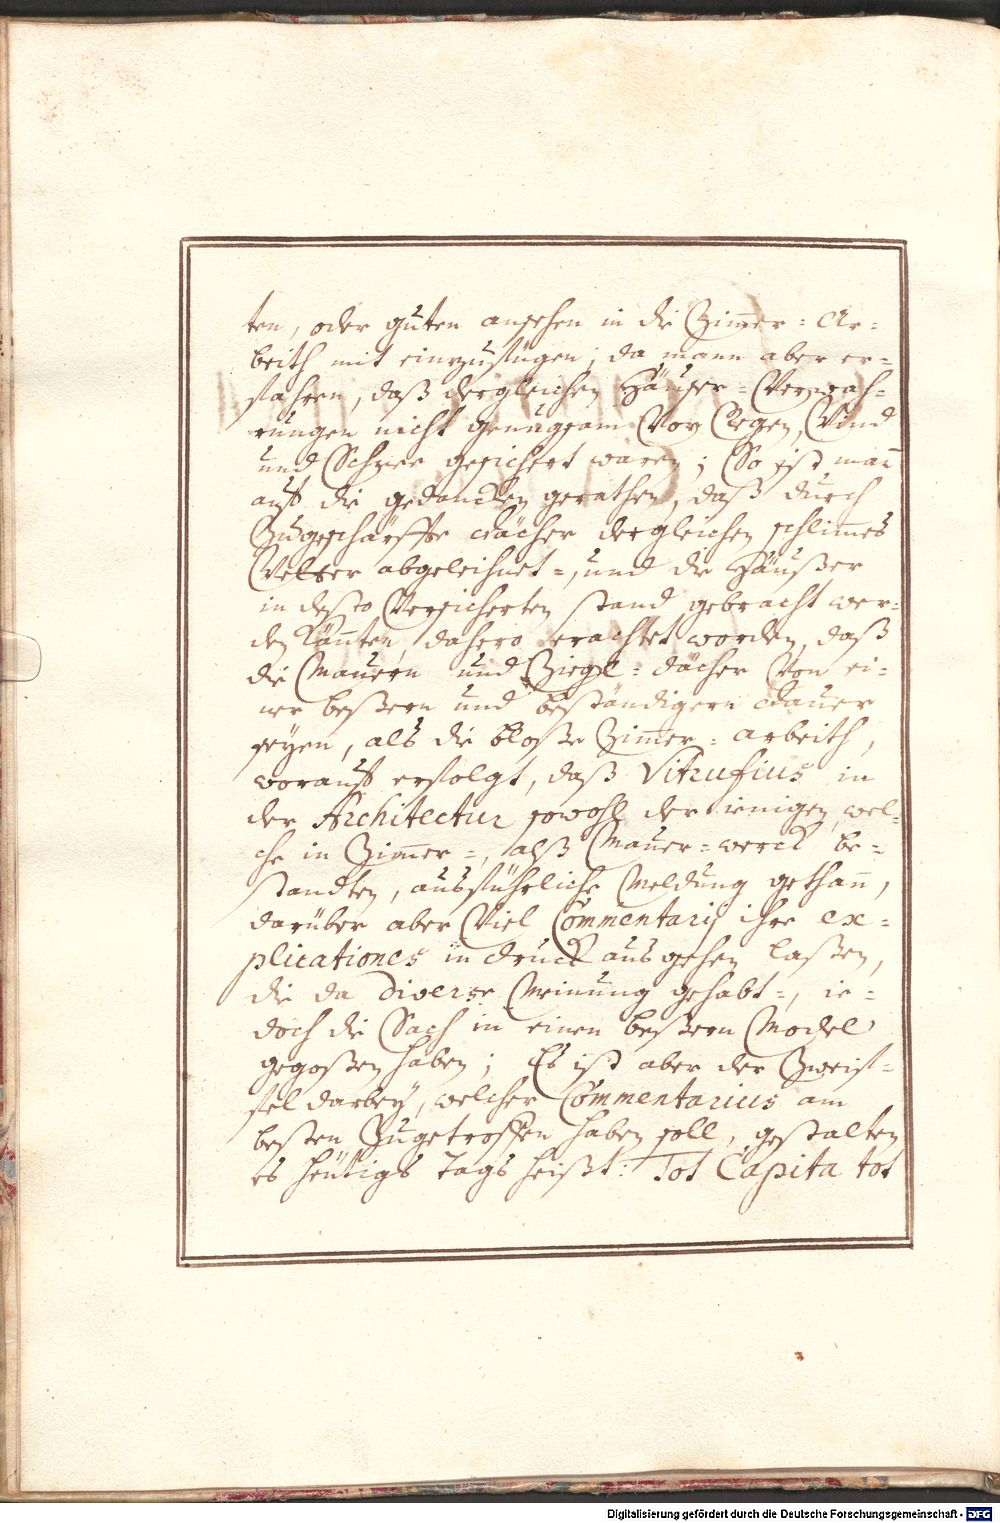 ten, oder guten ansehen in die Zim̃er = Ar=
beith mit einzufügen; da mann aber er=
fahren, daß dergleichen Häuser = Verwah=
rungen nicht genugsam Vor Regen, Wind
und Schnee gesichert waren; So ist man̄
auf die gedancken gerathen, daß durch
Zugeschärffte dächer dergleichen schlim̃es
Wetter abgeleihnet =, und die Häußer
in desto Versicherten stand gebracht wer=
den kön̄ten, dahero erachtet worden, daß
die Mauern und Ziegl = dächer Von ei=
ner beßern und beständigern dauer
seyen, als die bloße Zim̃er = arbeith,
worauf erfolgt, daß Vitrufius in
der Architectur sowohl der ienigen, wel=
che in Zim̃er =, alß Mauer = werck be=
standten, ausführliche Meldung gethan̄,
darüber aber Viel Commentarij ihre ex=
plicationes in druck ausgehen laßen,
die da diverse Meinung gehabt =, ie=
doch die Sach in einen beßern Model
gegoßen haben; Es ist aber der Zweif=
fel darbey, welcher Commentarius am
besten Zugetroffen haben soll, gestalten
es heütigs tags heißt: Tot Capita tot
Digitalisierung gefördert durch die Deutsche Forschungsgemeinschaft - DFG